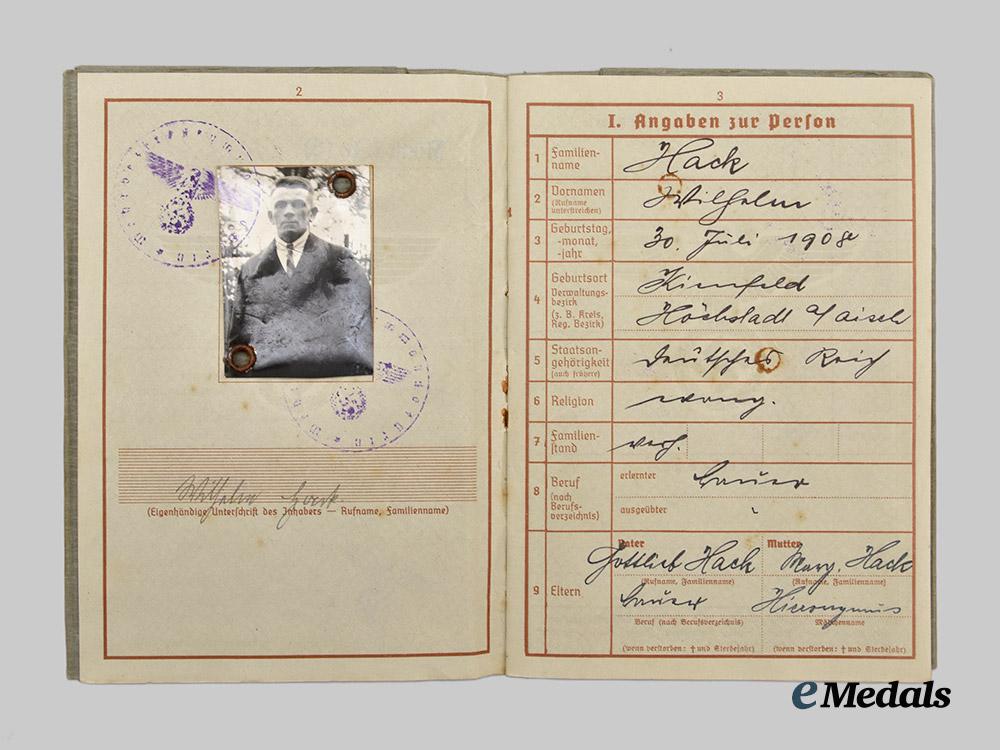 2
Wilhelm Hack
(Eigenhändige Unterschrift des Inhabers — Rufname, Familienname)
3
I. Angaben zur Person
1 Familien-
name
Hack
2 Vornamen
(Rufname
unterstreichen)
Wilhelm
3 Geburtstag,
-monat,
-jahr
30. Juli 1908
4 Geburtsort
Verwaltungs-
bezirk
(z. B. Kreis,
Reg. Bezirk)
Höchstadt a/Aisch
5 Staatsan-
gehörigkeit
(auch frühere)
Deutsches Reich
6 Religion
evang.
7 Familien-
stand
verh.
8 Beruf
(nach
Berufs-
verzeichnis)
erlernter
Bauer
ausgeübter
"
9 Eltern
Vater
Gottlieb Hack
(Rufname, Familienname)
Bauer
Beruf (nach Berufsverzeichnis)
(wenn verstorben: † und Sterbejahr)
Mutter
Marg. Hack
(Rufname, Familienname)
Hieronymus
Mädchenname
(wenn verstorben: † und Sterbejahr)
eMedals